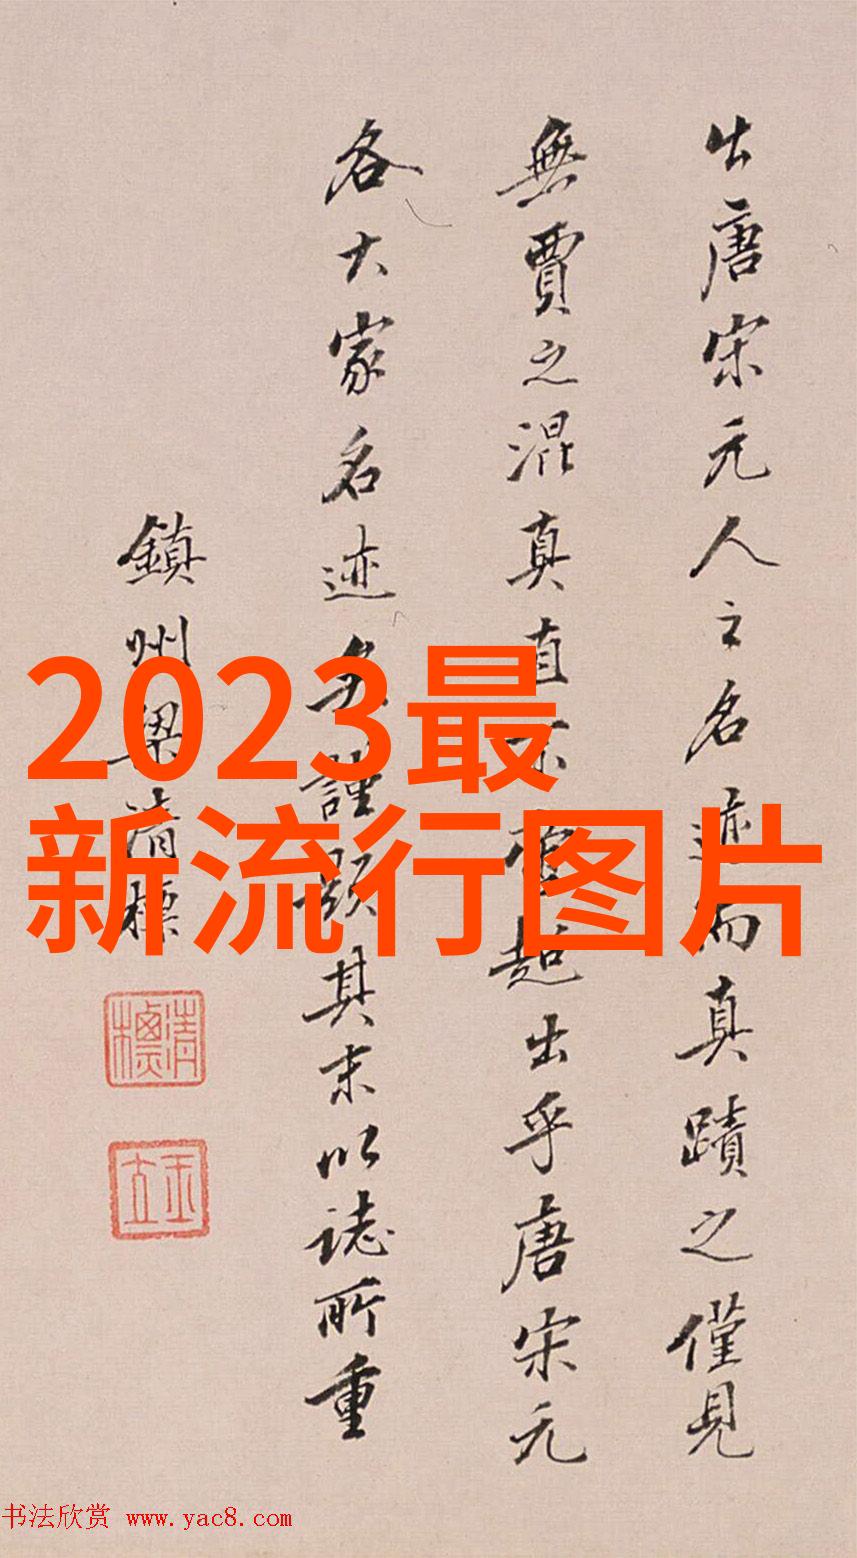 出唐宋元人之名迹而真蹟之僅見
無賈之混真直不啻超出乎唐宋元
各大家名迹矣謹題其末以誌所重
鎮州梁清標
清標
玉立
2023最
新流行图片
书法欣赏 www.yac8.com